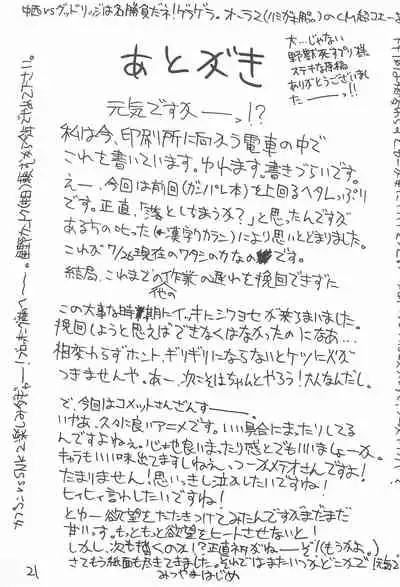 中西vsグッドリッジは名勝負だネ！ゲラゲラ。
大…じゃない
野獣死すプリ様
ステキな原稿
ありがとうございまし
た――っ!!
あとがき
元気ですカ――っ!?
私は今、印刷所に向かう電車の中で
これを書いています。ゆれます。書きづらいです。
えー、今回は前回(ガンパレ本)を上回るヘタレっぷり
です。正直、「落としちまうか？」と思ったんですが
あるちのヒった(漢字ワカラン)により思いとどまりました。
これが7/26現在のワタシのカなのです。
結局、これまでの他の作業の遅れを挽回できずに
この大事な時期にイッキにシワヨセが来ちまいました。
挽回しようと思えばできなくはなかったのになあ…
相変わらずホント、ギリギリにならないとケツに火が
つきませんや。あー、次こそはちゃんとやろう！大人なんだし。
で、今回はコメットさんざんす――。
いやあ、久々に良いアニメです。いい具合にまったりしてる
んですよねえ。心地良いまったり感とでも言いましょーか。
キャラもいい味出てますしねえ、つーかメテオさんですよ！
たまりません！思いっきし泣入したいですね！
ヒィヒィ言わしたいですね！
とゆー欲望をたたきつけてみたんですがまだまだ
甘いっす。もっともっと欲望をヒートさせないと！
しかし、次も描くのか！？正直初がね――ぞ！(もうかよ。)
さてもう紙面も尽きてきました。それではまたいつかどこかで
みつやまはじめ
21